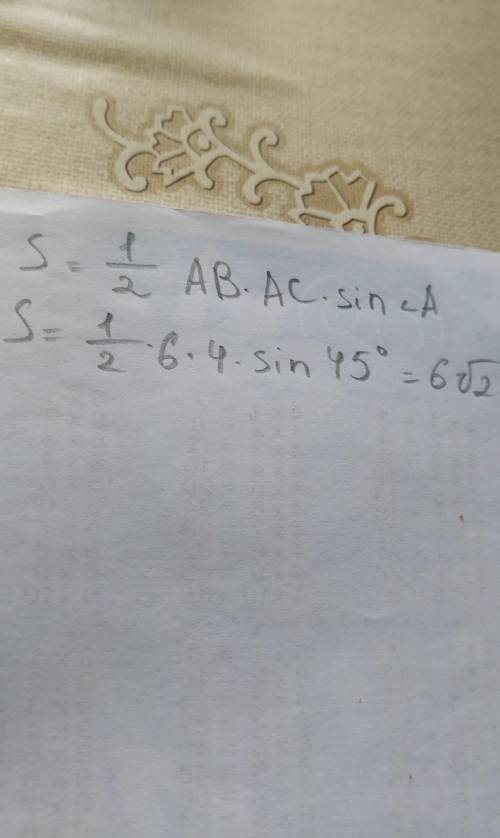 S = 1/2 AB · AC · sin ∠A
S = 1/2 · 6 · 4 · sin 45° = 6√2